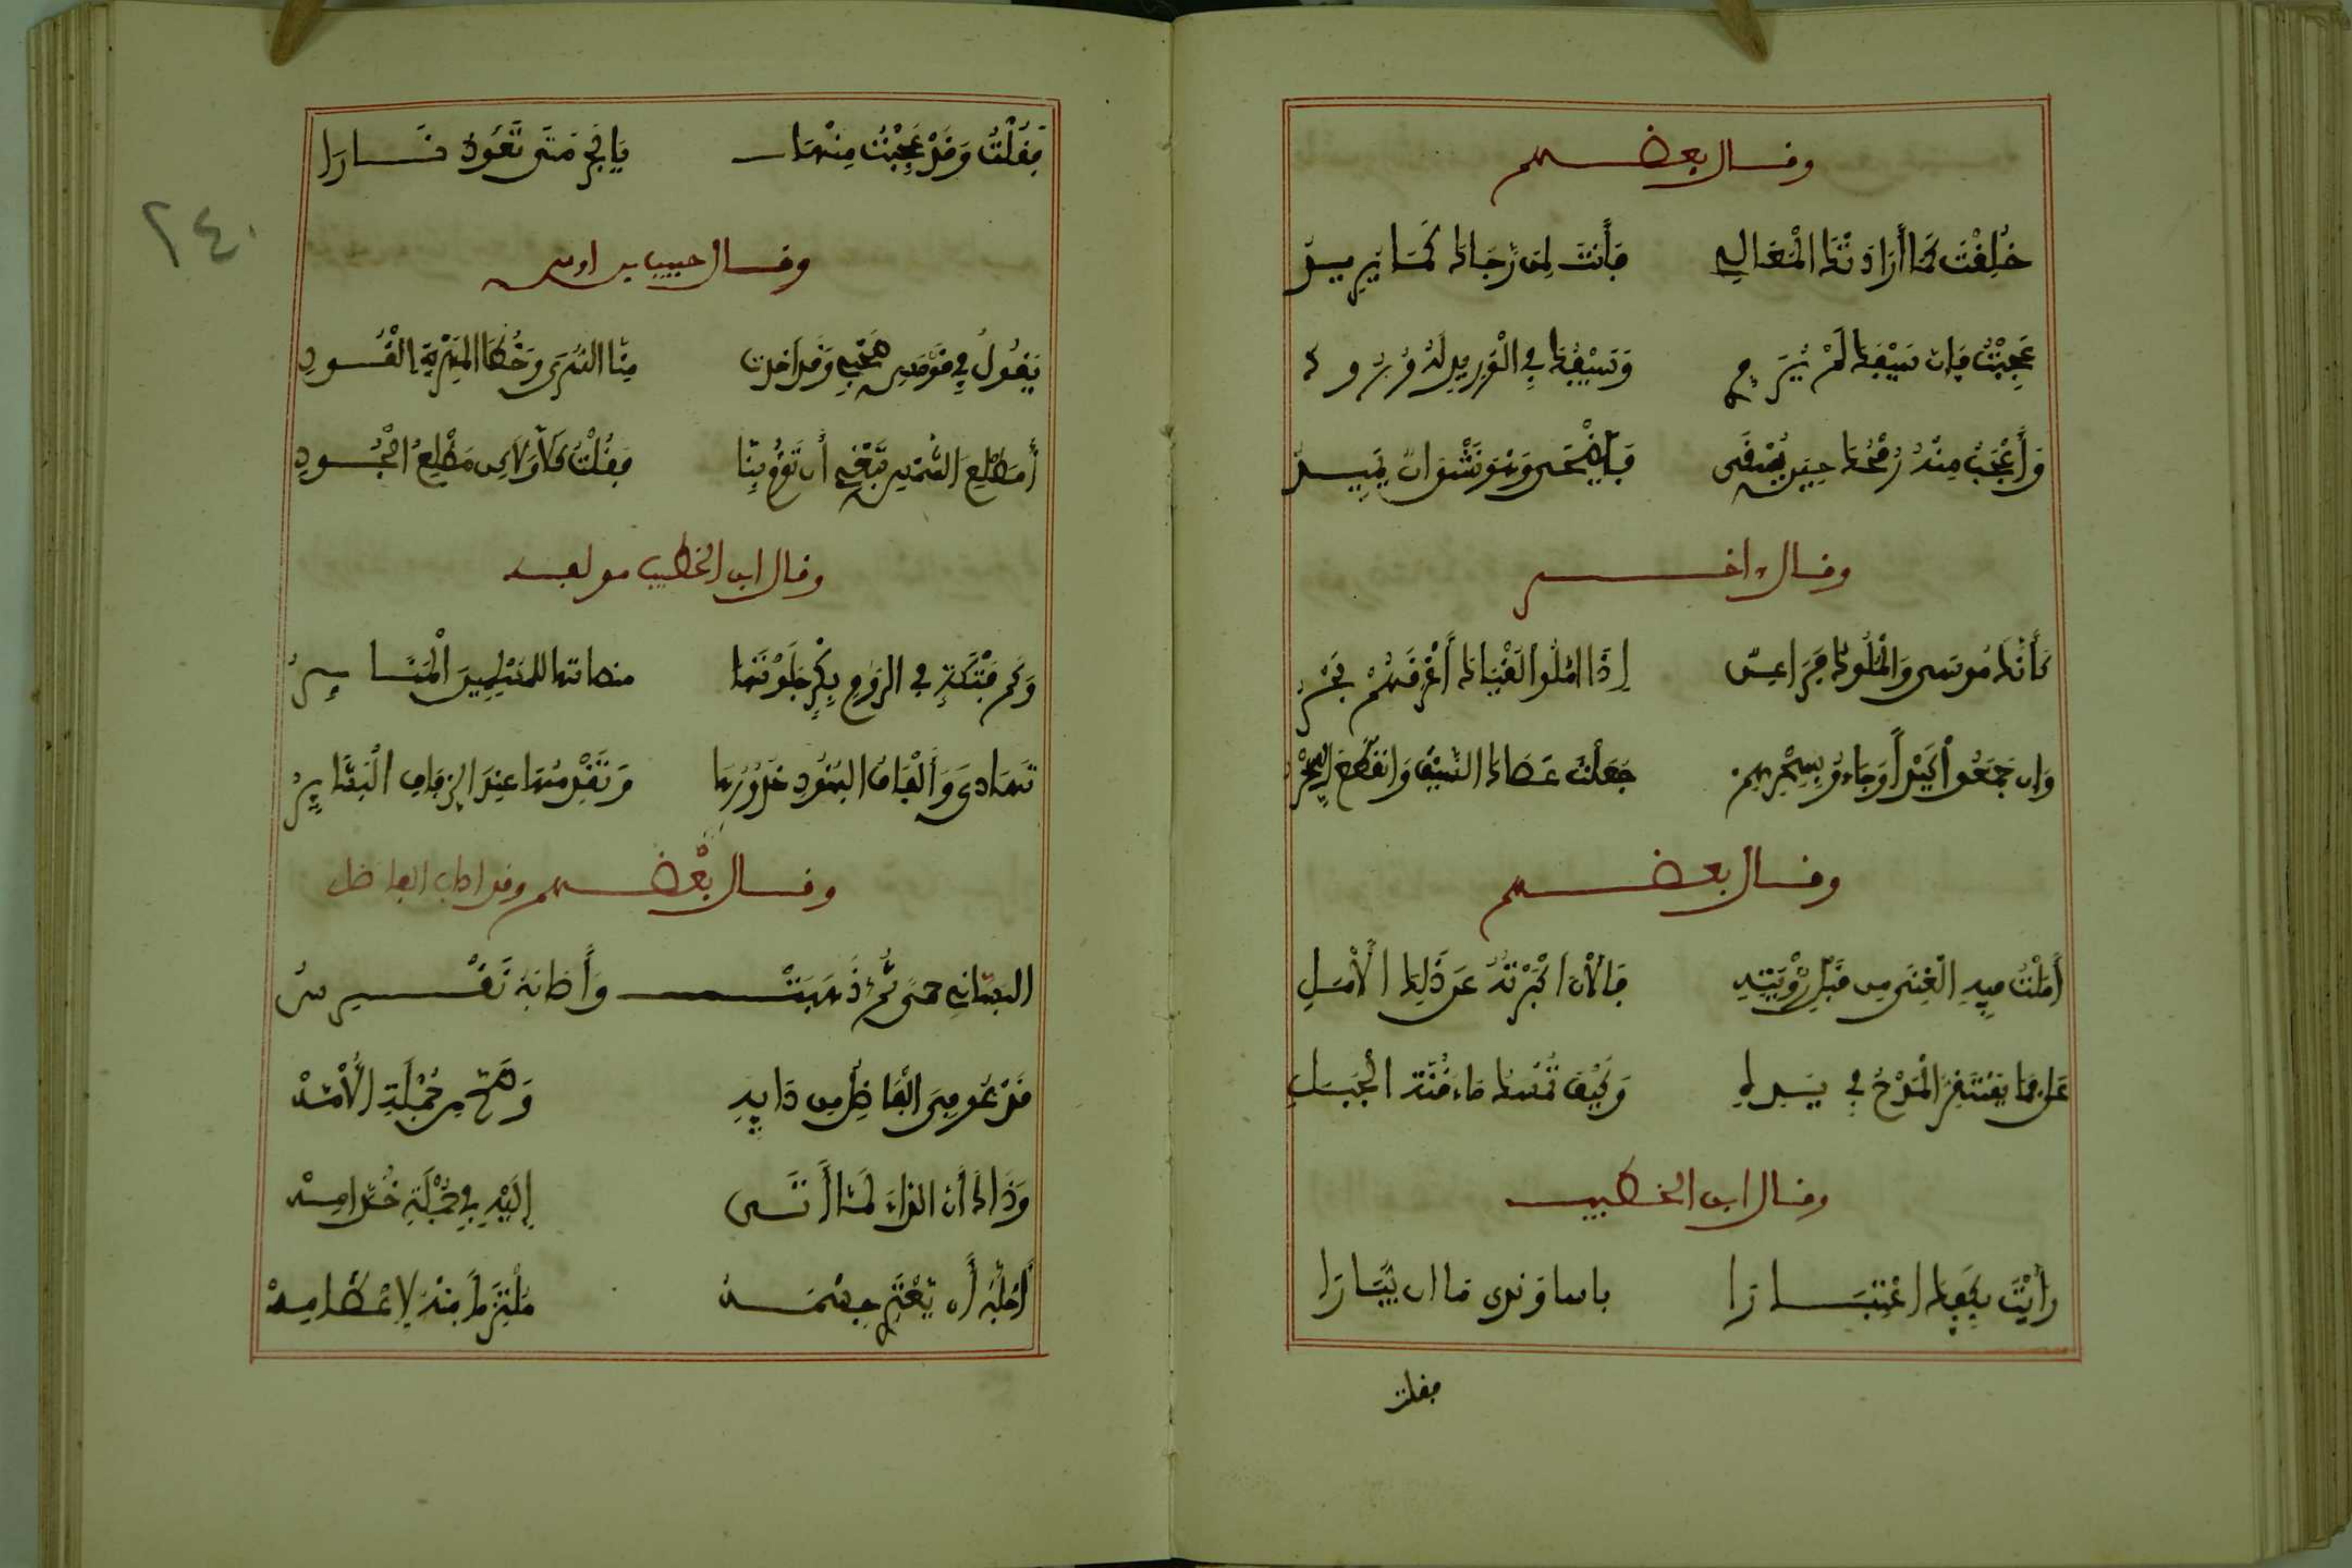 وقال بعضهم
خُلِقْتَ كَمَا أَرَادَتْكَ الْمَعَالِي فَأَنْتَ لِمَن رَجَاكَ كَمَا يُرِيدُ
عَجِبْتُ فَإِن سَيْفَكَ لَمْ يُرَوَّ وَسَيْفُكَ فِي الْوَرِيدِ لَهُ وُرُودُ
وَأَعْجَبُ مِنْهُ رُمْحُكَ حِينَ يُسْقَى فَيَصْحَى وَهْوَ نَشْوَان يَمِيدُ
وقال اخر
كَأَنَّكَ مُوسَى وَالْمُلُوكُ فَرَاعِنٌ إِذَا أَمَّلُوا لُقْيَاكَ أَغْرَقَهُمْ بَحْرُ
وَإِن جَمَعُوا كَيْداً وَجَاءُوا بِسِحْرِهِمْ جَعَلْتَ عَصَاكَ السَّيْفَ وَانْقَطَعَ السِّحْرُ
وقال بعضهم
أَمَّلْتُ فِيهِ الْغِنَى مِن قَبْلِ رُؤْيَتِهِ فَالآنَ أَكْبَرْتُهُ عَن ذَلِكَ الأَمَلِ
عَلَا فَمَا يَسْتَقِرُّ الْمَدْحُ فِي يَدِهِ وَكَيْفَ تُمْسِكُ مَاءً قُنَّةُ الْجَبَلِ
وقال ابن الخطيب
رَأَيْتُ بِكَفِّكَ اعْتِبَارَا بأسا وندى ما ان يُبَارَا
فقلت
٢٤٠
فَقُلْتُ وَقَدْ عَجِبْتُ مِنْهَا يَا بَحْرُ مَتَى تَعُودُ نَارَا
وقال حبيب بن اوس
يَقُولُ فِي قَوْمَسٍ صَحْبِي وَقَدْ أَخَذَت مِنَّا السُّرَى وَخُطَا الْمَهْرِيَّةِ الْقُودِ
أَمَطْلِعَ الشَّمْسِ تَبْغِي أَن تَؤُمَّ بِنَا فَقُلْتُ كَلَّا وَلَكِن مَطْلِعُ الْجُودِ
وقال ابن الخطيب مولفه
وَكَم فَتْكَةٍ فِي الرُّومِ بِكْرٍ جَلَوْتَهَا منصاتها للمسْلِمِينَ الْمَنَابِرُ
تَهَادَى وَأَلْفَافُ الْبُنُودِ خُدُورُهَا وَتَقْدُمُهَا عِندَ الزِّفَافِ الْبَشَايِرُ
وقال بعضهم وقد اطال الفاضل
البستاني حتى ثم ذَهَبَتْ وَأَظانه نَفْسِ
قَدْ عُوفِيَ الْفَاضِلُ مِن دَايِهِ وَصَحَّ مِن جُمْلَةِ آلَامِهْ
وَذَاكَ أَنَّ الدَّاءَ لَمَّا أَتَى إِلَيْهِ فِي جُمْلَةِ خُدَّامِهْ
أَجَلَّهُ أَن يَعْتَرِي جِسْمَهُ مُلْتَزِماً مِنْهُ لِإِعْظَامِهْ